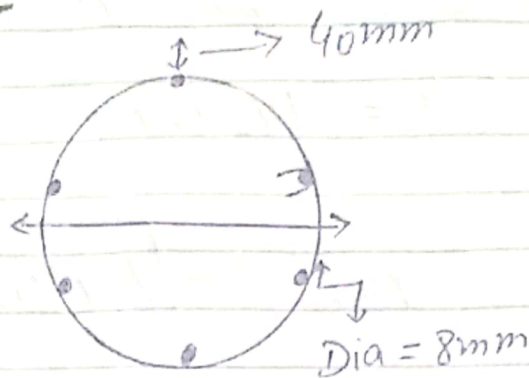 40mm
Dia = 8mm